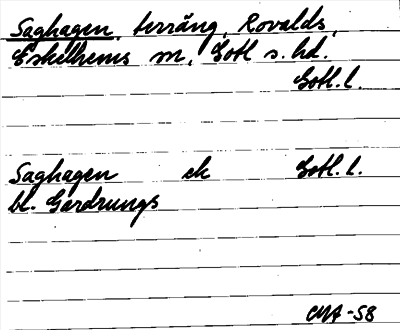 Saghagen, terräng, Rovalds,
Eskelhems sn, Gotl s. hd.
Gotl. l.
Saghagen ek Gotl. l.
bl. Gardrungs
CMA -58